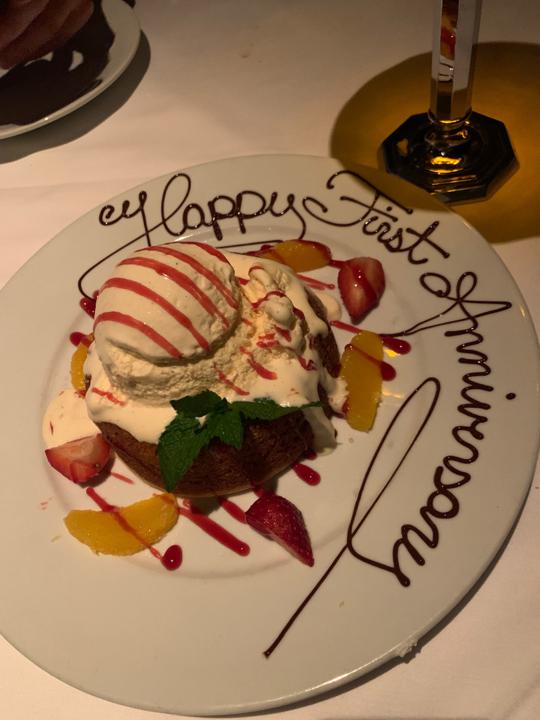 Happy First Anniversary